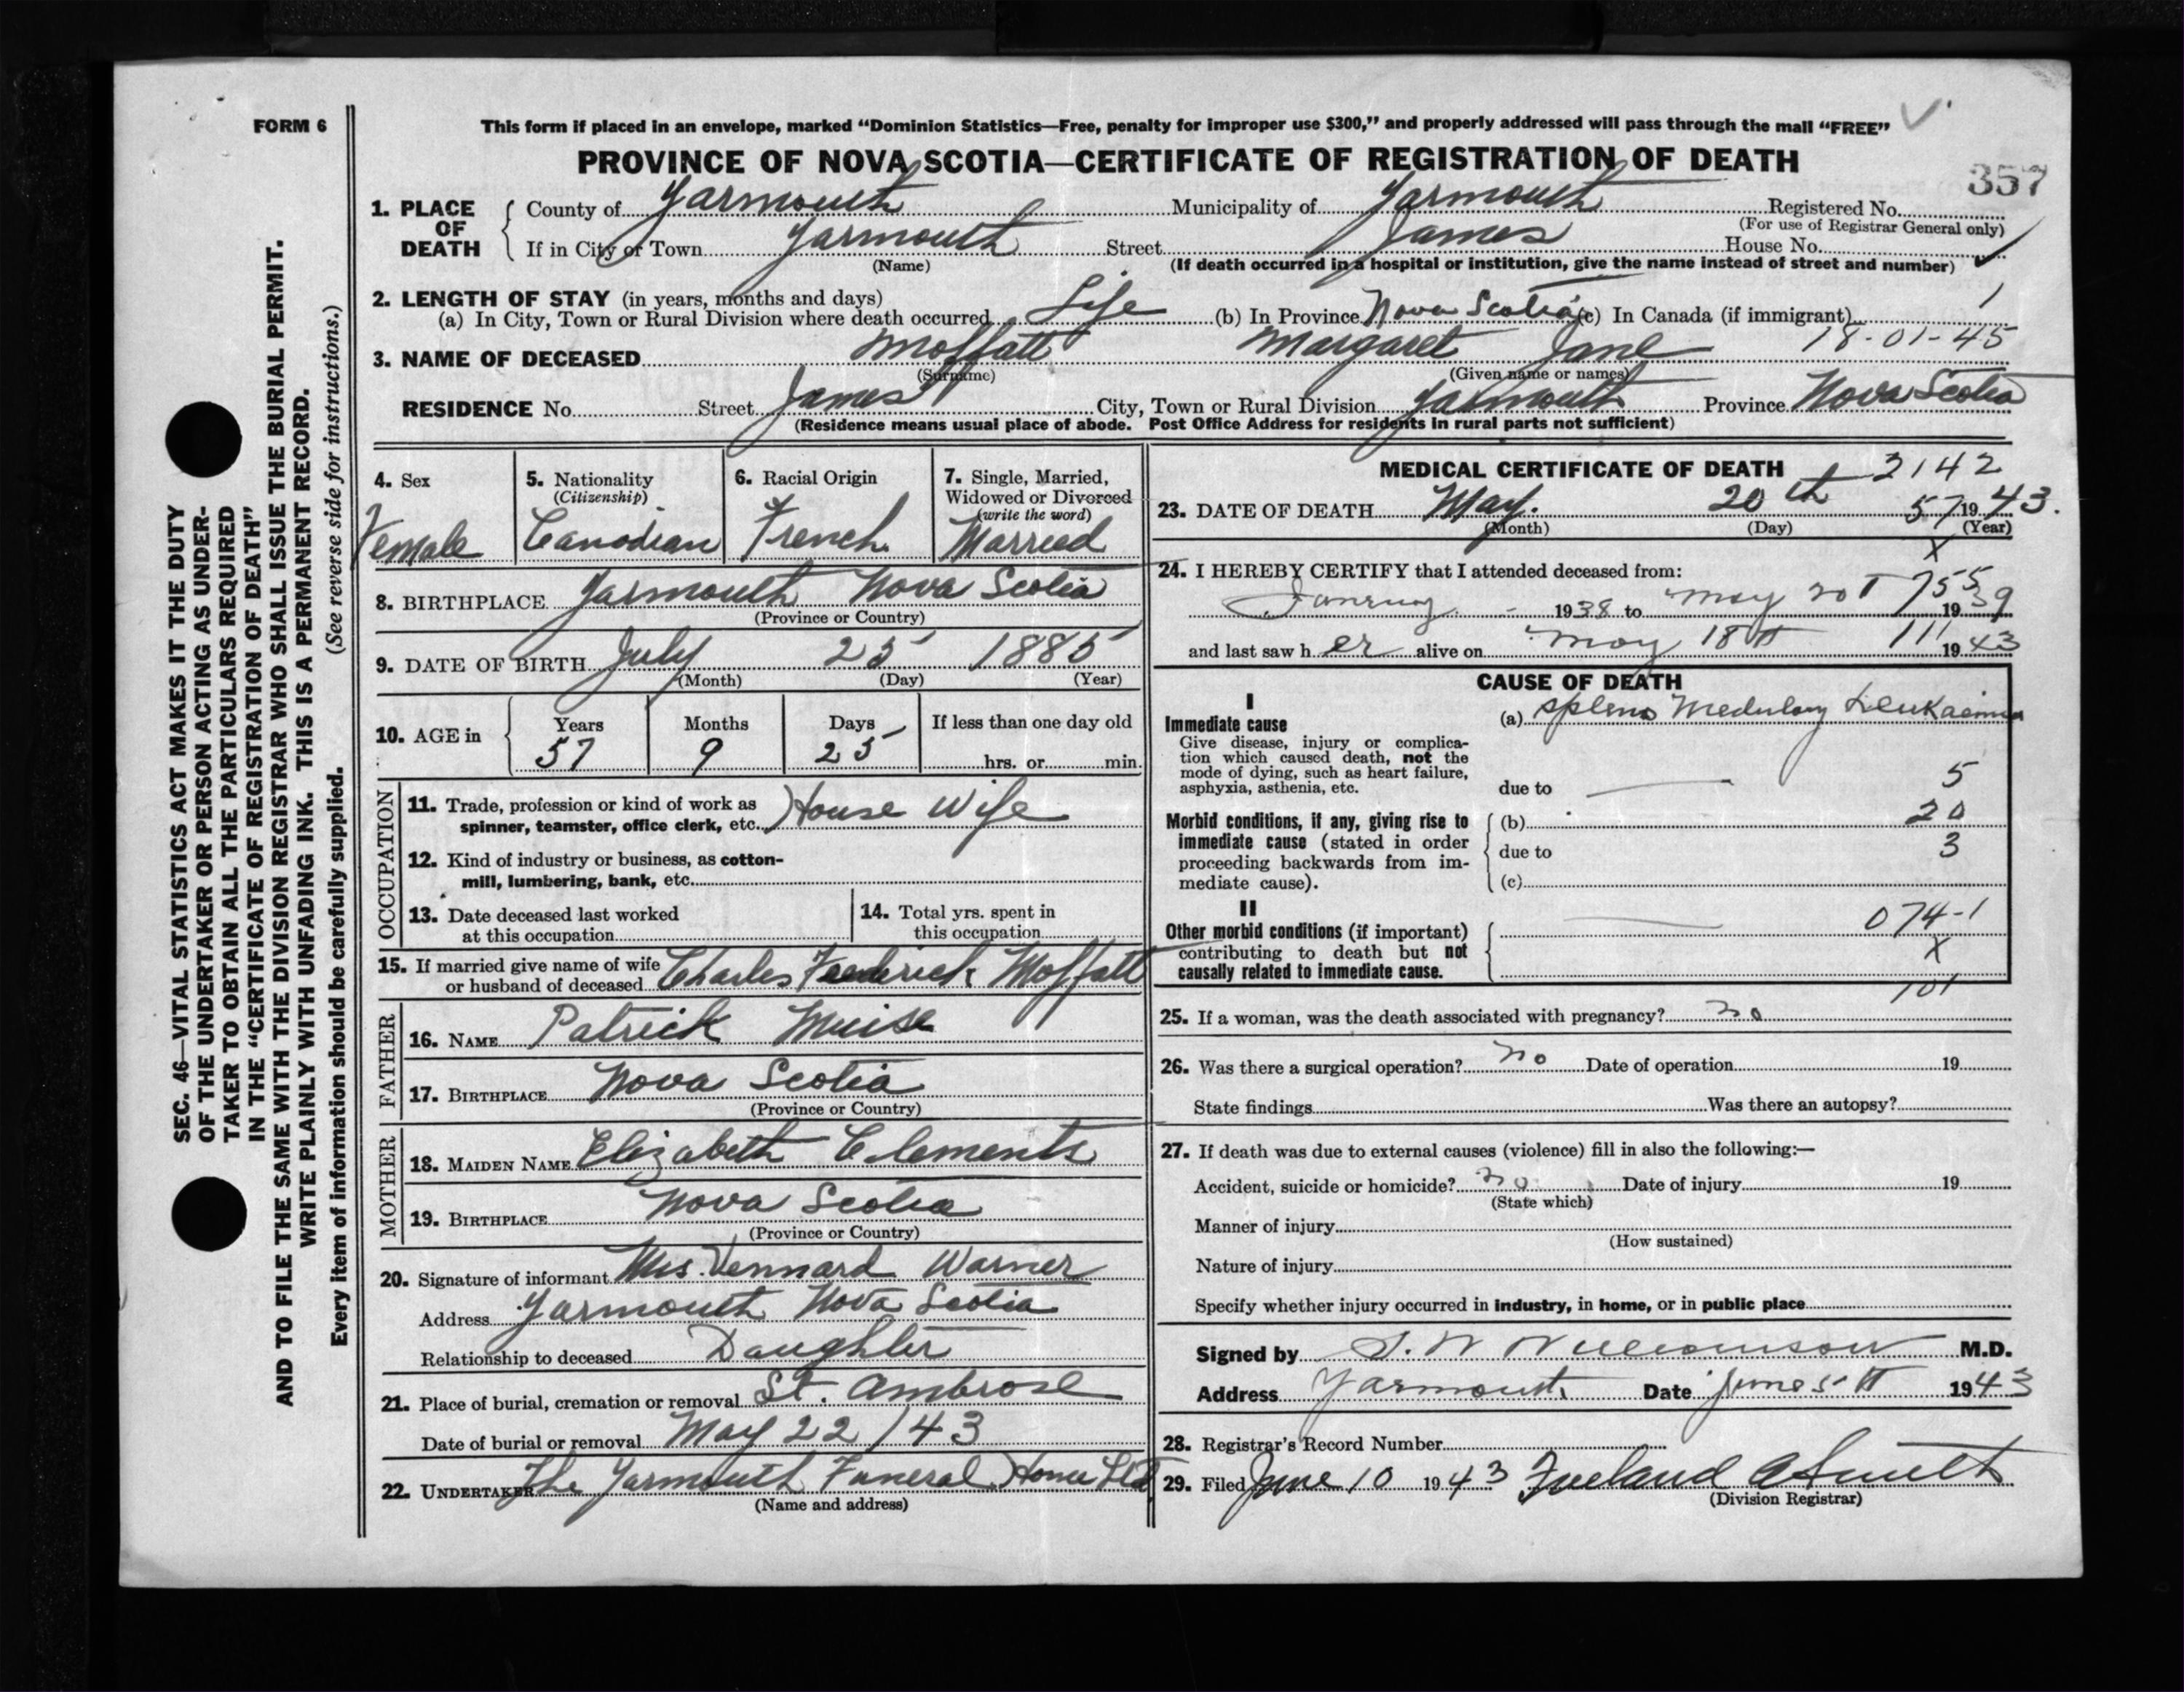 FORM 6
This form if placed in an envelope, marked “Dominion Statistics—Free, penalty for improper use $300,” and properly addressed will pass through the mail “FREE”
PROVINCE OF NOVA SCOTIA—CERTIFICATE OF REGISTRATION OF DEATH
357
1. PLACE OF DEATH County of Yarmouth Municipality of Yarmouth Registered No.
(For use of Registrar General only)
If in City or Town Yarmouth Street James House No.
(Name) (If death occurred in a hospital or institution, give the name instead of street and number)
2. LENGTH OF STAY (in years, months and days)
(a) In City, Town or Rural Division where death occurred Life (b) In Province Nova Scotia (c) In Canada (if immigrant) 1
3. NAME OF DECEASED Moffatt Margaret Jane 18-01-45
(Surname) (Given name or names)
RESIDENCE No. Street James City, Town or Rural Division Yarmouth Province Nova Scotia
(Residence means usual place of abode. Post Office Address for residents in rural parts not sufficient)
4. Sex Female
5. Nationality (Citizenship) Canadian
6. Racial Origin French
7. Single, Married, Widowed or Divorced (write the word) Married
8. BIRTHPLACE Yarmouth Nova Scotia
(Province or Country)
9. DATE OF BIRTH July 25 1885
(Month) (Day) (Year)
10. AGE in Years 57 Months 9 Days 25 If less than one day old
hrs. or min.
OCCUPATION
11. Trade, profession or kind of work as
spinner, teamster, office clerk, etc. House Wife
12. Kind of industry or business, as cotton-
mill, lumbering, bank, etc.
13. Date deceased last worked
at this occupation
14. Total yrs. spent in
this occupation
15. If married give name of wife
or husband of deceased Charles Frederick Moffatt
FATHER
16. NAME Patrick Muise
17. BIRTHPLACE Nova Scotia
(Province or Country)
MOTHER
18. MAIDEN NAME Elizabeth Clements
19. BIRTHPLACE Nova Scotia
(Province or Country)
20. Signature of informant Mrs. Vennard Warner
Address Yarmouth Nova Scotia
Relationship to deceased Daughter
21. Place of burial, cremation or removal St. Ambrose
Date of burial or removal May 22/43
22. UNDERTAKER The Yarmouth Funeral Home Ltd
(Name and address)
MEDICAL CERTIFICATE OF DEATH 2142
23. DATE OF DEATH May. 20th 57 1943.
(Month) (Day) (Year)
X
24. I HEREBY CERTIFY that I attended deceased from:
January 1938 to May 20 755 1939
and last saw her alive on May 18 111 1943
CAUSE OF DEATH
I
Immediate cause
Give disease, injury or complica-
tion which caused death, not the
mode of dying, such as heart failure,
asphyxia, asthenia, etc.
(a) Spleno Medulary Leukaemia
due to — 5
Morbid conditions, if any, giving rise to
immediate cause (stated in order
proceeding backwards from im-
mediate cause).
(b) 20
due to 3
(c)
II
Other morbid conditions (if important)
contributing to death but not
causally related to immediate cause.
— 074-1
X
101
25. If a woman, was the death associated with pregnancy? no
26. Was there a surgical operation? no Date of operation 19
State findings Was there an autopsy?
27. If death was due to external causes (violence) fill in also the following:—
Accident, suicide or homicide? no Date of injury 19
(State which)
Manner of injury
(How sustained)
Nature of injury
Specify whether injury occurred in industry, in home, or in public place
Signed by S. W Williamson M.D.
Address Yarmouth Date June 5 1943
28. Registrar's Record Number
29. Filed June 10 1943 Freeland A Smith
(Division Registrar)
SEC. 46—VITAL STATISTICS ACT MAKES IT THE DUTY
OF THE UNDERTAKER OR PERSON ACTING AS UNDER-
TAKER TO OBTAIN ALL THE PARTICULARS REQUIRED
IN THE “CERTIFICATE OF REGISTRATION OF DEATH”
AND TO FILE THE SAME WITH THE DIVISION REGISTRAR WHO SHALL ISSUE THE BURIAL PERMIT.
WRITE PLAINLY WITH UNFADING INK. THIS IS A PERMANENT RECORD.
Every item of information should be carefully supplied. (See reverse side for instructions.)